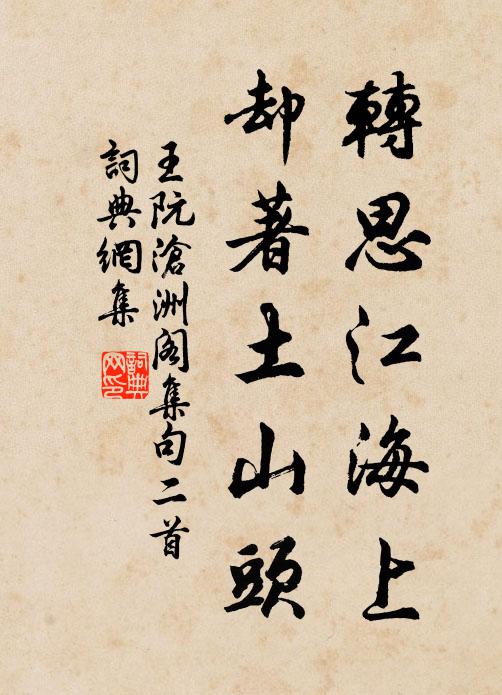 轉思江海上
却著土山頭
王阮滄洲阁集句二首
詞典網集
詞典网印